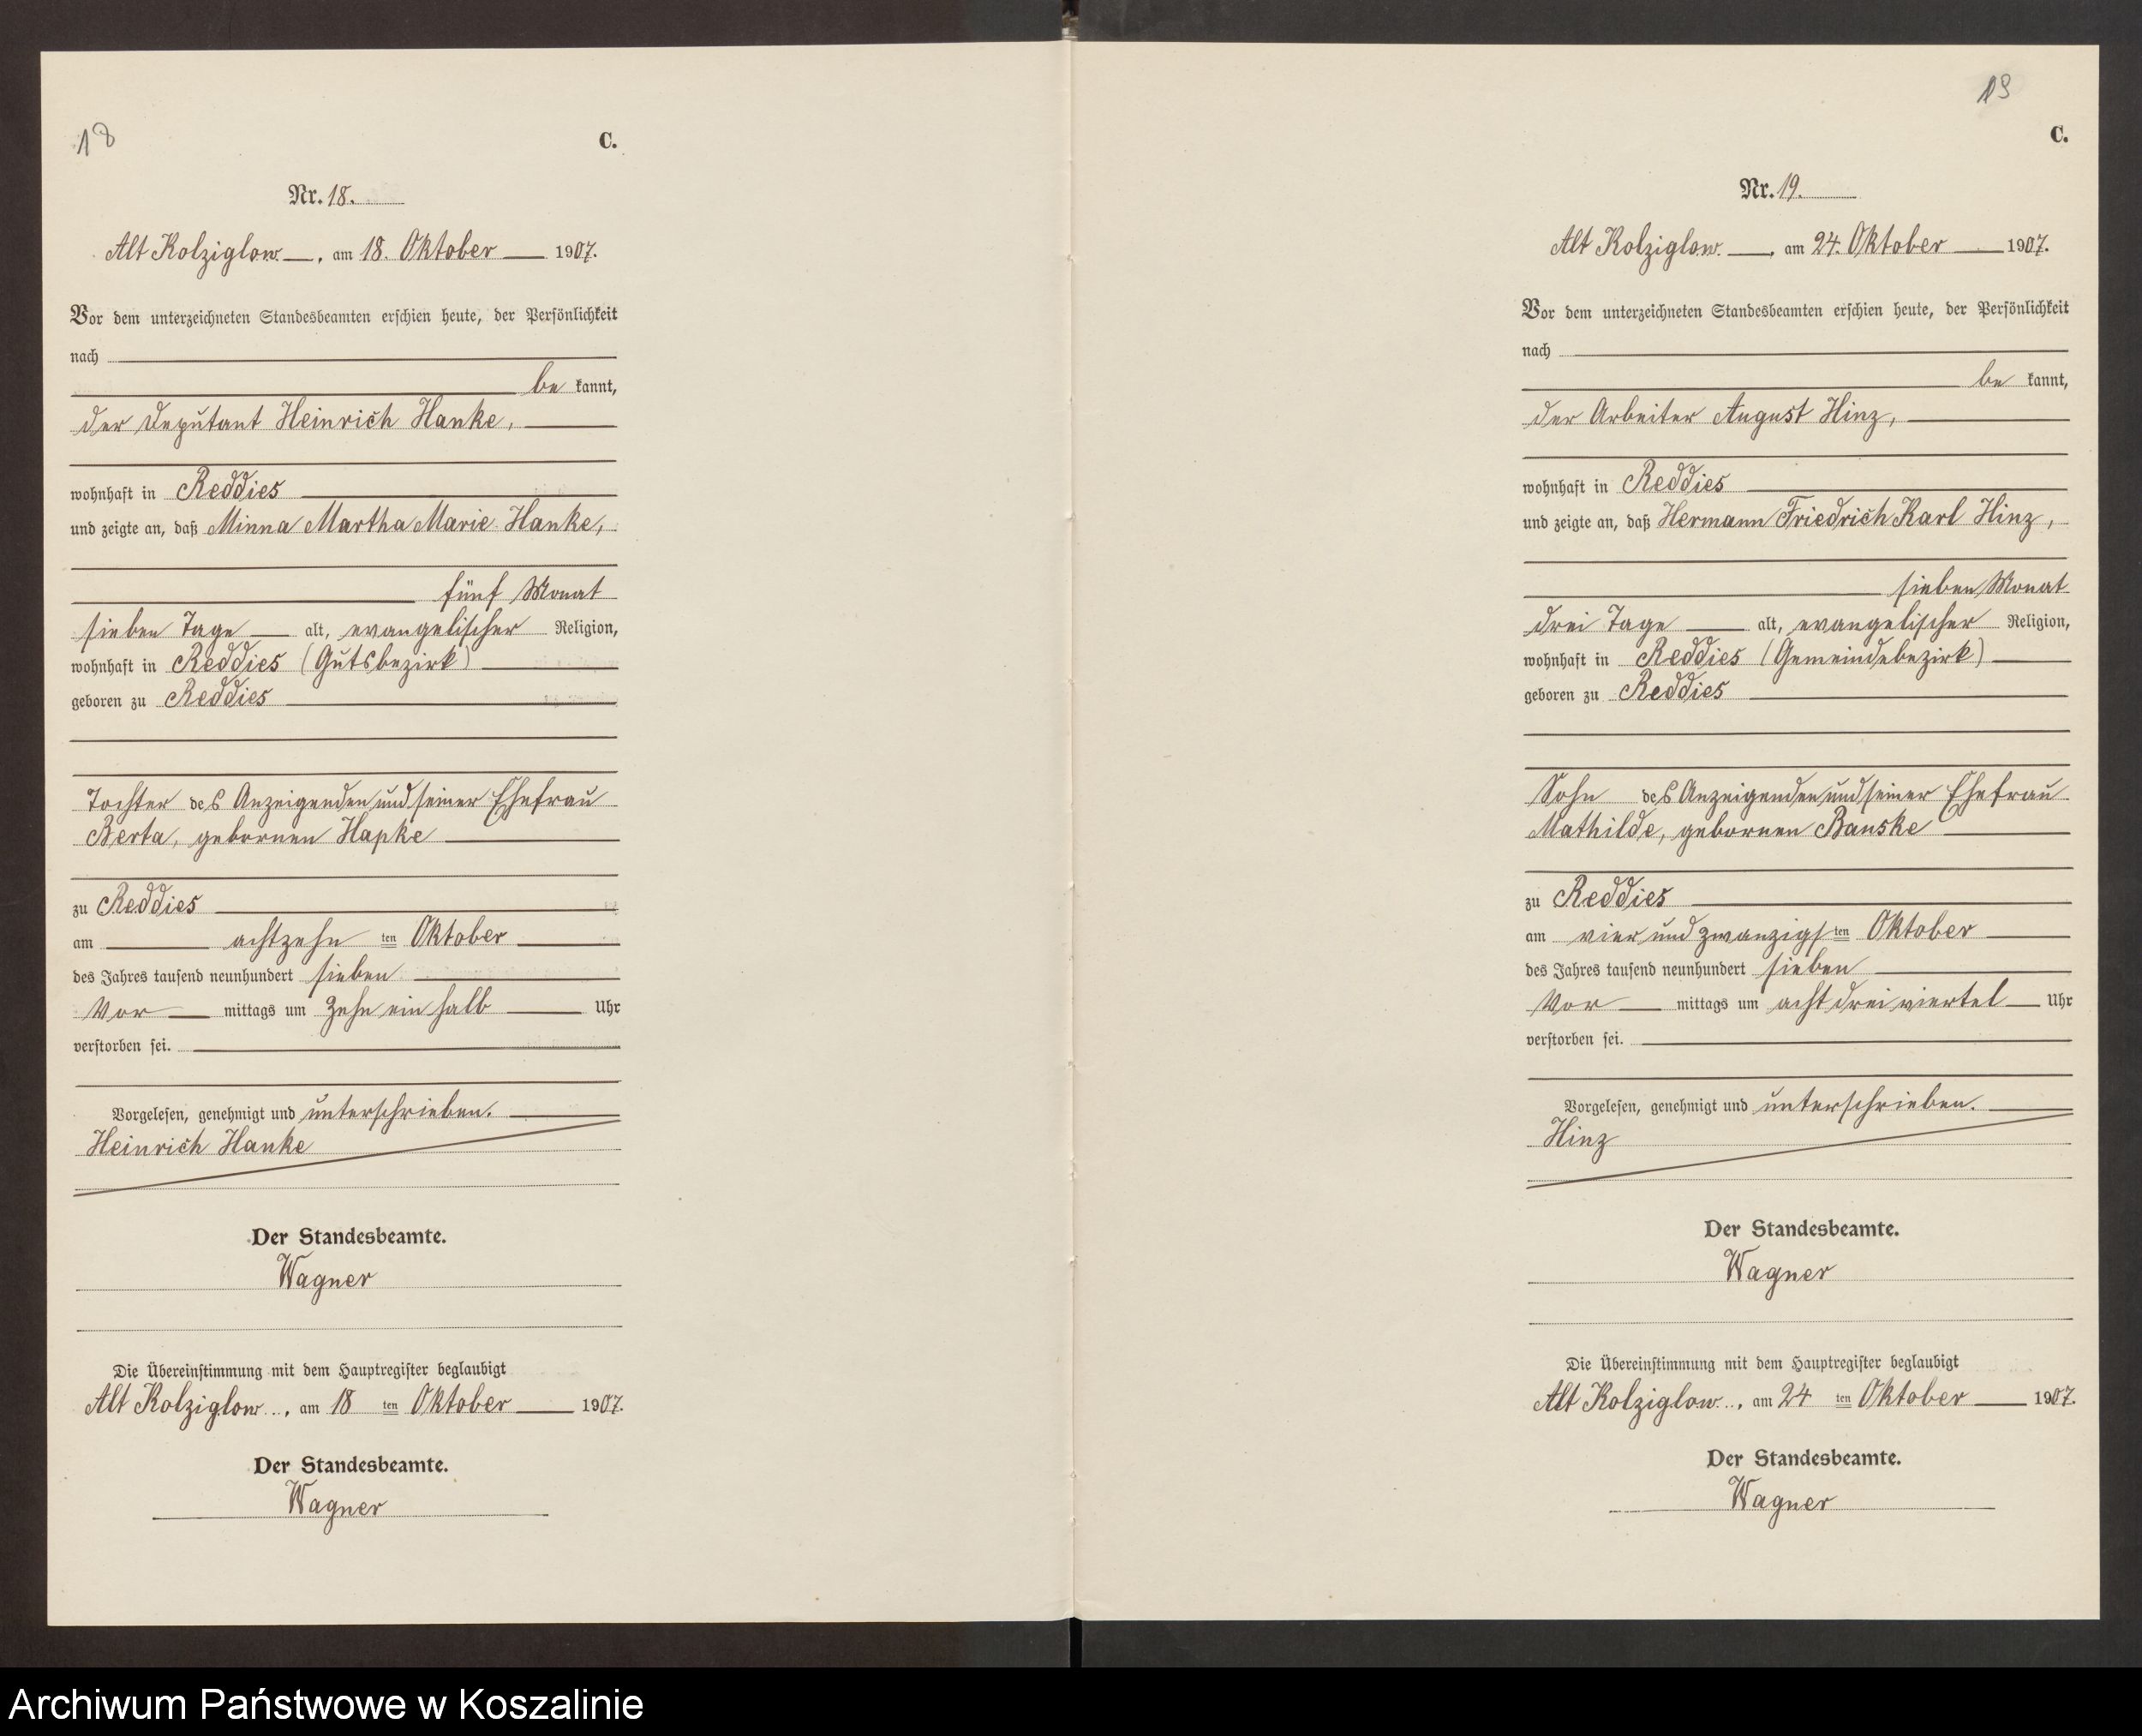 18
C.
Nr. 18.
Alt Kolziglow, am 18. Oktober 1907.
Vor dem unterzeichneten Standesbeamten erschien heute, der Persönlichkeit
nach
be kannt,
der Deputant Heinrich Hanke,
wohnhaft in Reddies
und zeigte an, daß Minna Martha Marie Hanke,
fünf Monat
sieben Tage alt, evangelischer Religion,
wohnhaft in Reddies (Gutsbezirk)
geboren zu Reddies
Tochter des Anzeigenden und seiner Ehefrau
Berta, gebornen Hapke
zu Reddies
am achtzehn ten Oktober
des Jahres tausend neunhundert sieben
Vor mittags um zehn ein halb Uhr
verstorben sei.
Vorgelesen, genehmigt und unterschrieben.
Heinrich Hanke
Der Standesbeamte.
Wagner
Die Übereinstimmung mit dem Hauptregister beglaubigt
Alt Kolziglow, am 18 ten Oktober 1907.
Der Standesbeamte.
Wagner
19
C.
Nr. 19.
Alt Kolziglow, am 24. Oktober 1907.
Vor dem unterzeichneten Standesbeamten erschien heute, der Persönlichkeit
nach
be kannt,
der Arbeiter August Hinz,
wohnhaft in Reddies
und zeigte an, daß Hermann Friedrich Karl Hinz,
sieben Monat
drei Tage alt, evangelischer Religion,
wohnhaft in Reddies (Gemeindebezirk)
geboren zu Reddies
Sohn des Anzeigenden und seiner Ehefrau
Mathilde, gebornen Banske
zu Reddies
am vier und zwanzigs ten Oktober
des Jahres tausend neunhundert sieben
Vor mittags um acht drei viertel Uhr
verstorben sei.
Vorgelesen, genehmigt und unterschrieben.
Hinz
Der Standesbeamte.
Wagner
Die Übereinstimmung mit dem Hauptregister beglaubigt
Alt Kolziglow, am 24 ten Oktober 1907.
Der Standesbeamte.
Wagner
Archiwum Państwowe w Koszalinie